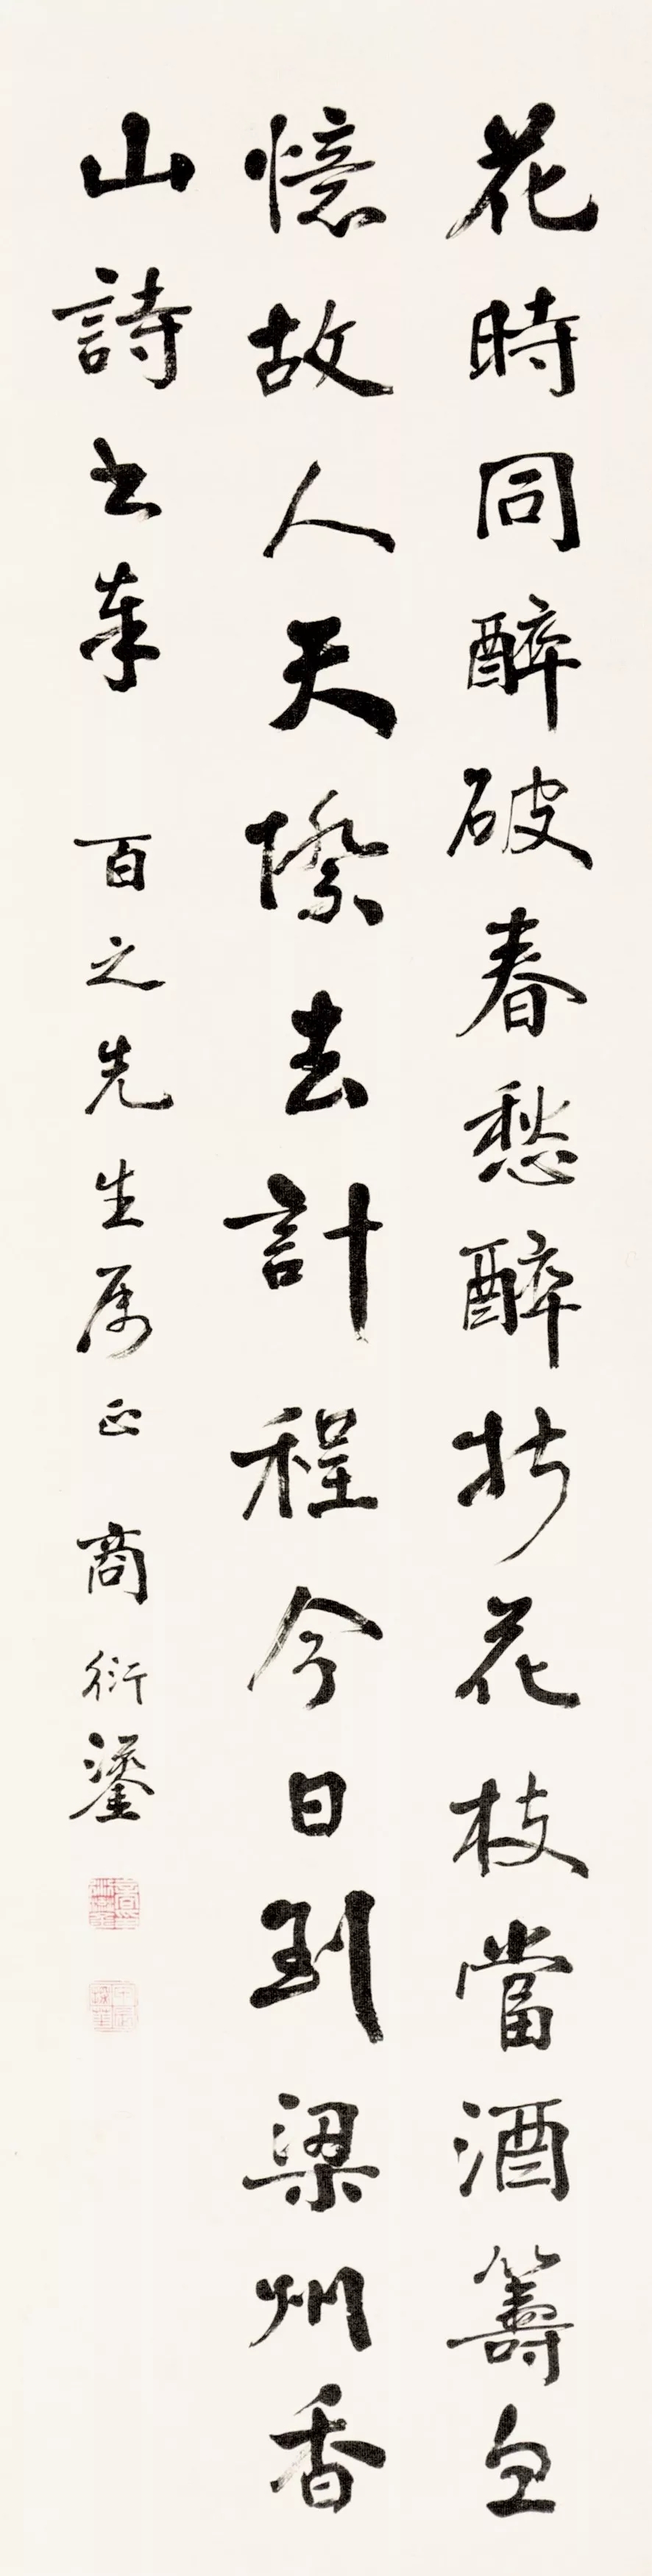 花時同醉破春愁醉折花枝當酒籌忽
憶故人天際去計程今日到梁州香
山詩書奉
百之先生属正 商衍鎏